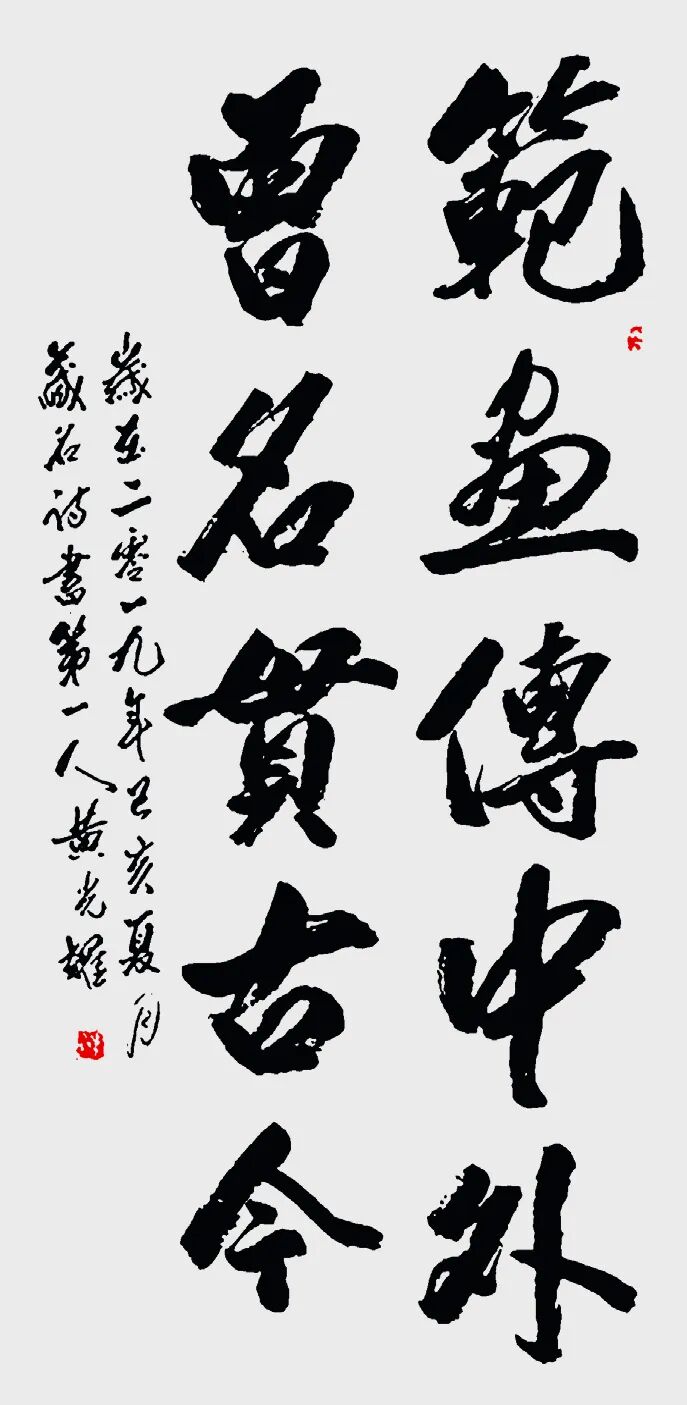 範畫傳中外
曽名貫古今
歲在二零一九年己亥夏月
藏名诗書第一人黄光耀